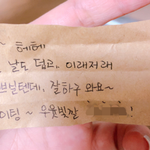 ~ 헤헤
날도 덥고, 이래저래
쁘실텐데, 잘하구 와요~
이팅 ~ 우윳빛깔